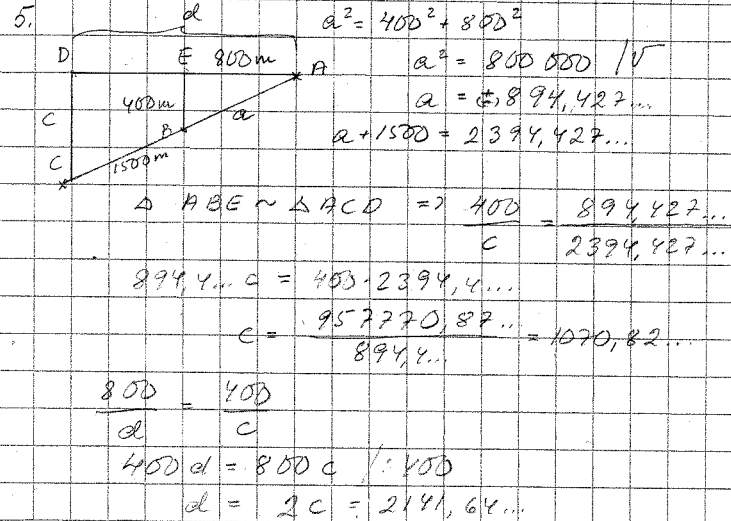 5.
d
D E 800m A
400m
C B a
C 1500m
a² = 400² + 800²
a² = 800 000 /√
a = (±) 894,427...
a + 1500 = 2394,427...
△ ABE ~ △ ACD => 400/c = 894,427.../2394,427...
894,4... c = 400·2394,4...
c = 957770,87.../894,4... = 1070,82...
800/d = 400/c
400 d = 800 c /:400
d = 2c = 2141,64...